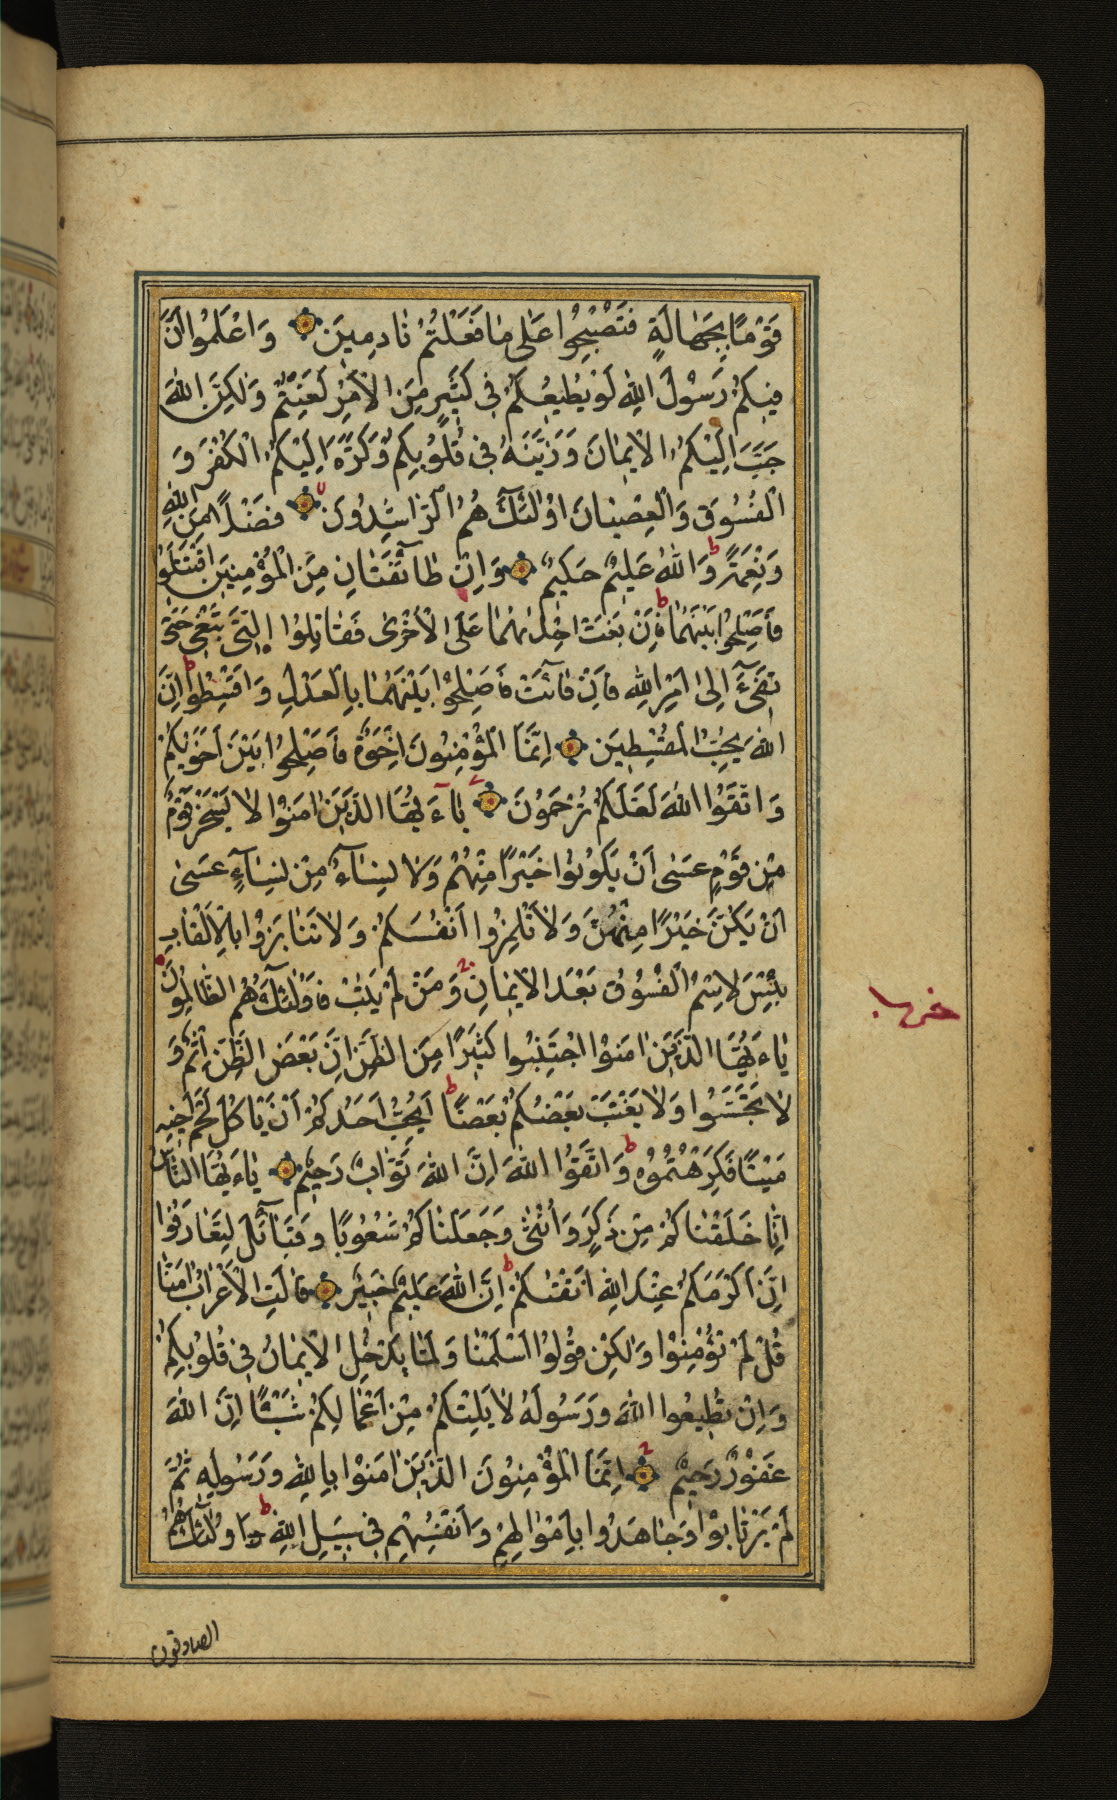 قَوْمًا بِجَهَالَةٍ فَتُصْبِحُوا عَلٰى مٰا فَعَلْتُمْ نٰادِمِينَ وَاعْلَمُوا اَنَّ
فِيكُمْ رَسُولَ اللّٰهِ لَوْ يُطِيعُكُمْ فِى كَثِيرٍ مِنَ الْاَمْرِ لَعَنِتُّمْ وَلٰكِنَّ اللّٰهَ
حَبَّبَ اِلَيْكُمُ الْاِيمٰانَ وَزَيَّنَهُ فِى قُلُوبِكُمْ وَكَرَّهَ اِلَيْكُمُ الْكُفْرَ وَ
الْفُسُوقَ وَالْعِصْيٰانَ اُولٰئِكَ هُمُ الرَّاشِدُونَ فَضْلًا مِنَ اللّٰهِ
وَنِعْمَةً ط وَاللّٰهُ عَلِيمٌ حَكِيمٌ وَاِنْ طٰائِفَتٰانِ مِنَ الْمُؤْمِنِينَ اقْتَتَلُوا
فَاَصْلِحُوا بَيْنَهُمٰا ط فَاِنْ بَغَتْ اِحْدٰىهُمٰا عَلَى الْاُخْرٰى فَقٰاتِلُوا الَّتِى تَبْغِى حَتّٰى
تَفِىٓءَ اِلٰى اَمْرِ اللّٰهِ فَاِنْ فٰاءَتْ فَاَصْلِحُوا بَيْنَهُمٰا بِالْعَدْلِ وَاَقْسِطُوا ط اِنَّ
اللّٰهَ يُحِبُّ الْمُقْسِطِينَ اِنَّمَا الْمُؤْمِنُونَ اِخْوَةٌ فَاَصْلِحُوا بَيْنَ اَخَوَيْكُمْ
وَاتَّقُوا اللّٰهَ لَعَلَّكُمْ تُرْحَمُونَ يٰاءَيُّهَا الَّذِينَ اٰمَنُوا لٰا يَسْخَرْ قَوْمٌ
مِنْ قَوْمٍ عَسٰى اَنْ يَكُونُوا خَيْرًا مِنْهُمْ وَلٰا نِسٰاءٌ مِنْ نِسٰاءٍ عَسٰى
اَنْ يَكُنَّ خَيْرًا مِنْهُنَّ وَلٰا تَلْمِزُوا اَنْفُسَكُمْ وَلٰا تَنٰابَزُوا بِالْاَلْقٰابِ
بِئْسَ لاِسْمُ الْفُسُوقُ بَعْدَ الْاِيمٰانِ وَمَنْ لَمْ يَتُبْ فَاُولٰئِكَ هُمُ الظّٰالِمُونَ
يٰاءَيُّهَا الَّذِينَ اٰمَنُوا اجْتَنِبُوا كَثِيرًا مِنَ الظَّنِّ اِنَّ بَعْضَ الظَّنِّ اِثْمٌ وَ
لٰا تَجَسَّسُوا وَلٰا يَغْتَبْ بَعْضُكُمْ بَعْضًا ط اَيُحِبُّ اَحَدُكُمْ اَنْ يَاْكُلَ لَحْمَ اَخِيهِ
مَيْتًا فَكَرِهْتُمُوهُ ط وَاتَّقُوا اللّٰهَ اِنَّ اللّٰهَ تَوّٰابٌ رَحِيمٌ يٰاءَيُّهَا النّٰاسُ
اِنّٰا خَلَقْنٰاكُمْ مِنْ ذَكَرٍ وَاُنْثٰى وَجَعَلْنٰاكُمْ شُعُوبًا وَقَبٰائِلَ لِتَعٰارَفُوا
اِنَّ اَكْرَمَكُمْ عِنْدَ اللّٰهِ اَتْقٰىكُمْ ط اِنَّ اللّٰهَ عَلِيمٌ خَبِيرٌ قٰالَتِ الْاَعْرٰابُ اٰمَنّٰا
قُلْ لَمْ تُؤْمِنُوا وَلٰكِنْ قُولُوا اَسْلَمْنٰا وَلَمّٰا يَدْخُلِ الْاِيمٰانُ فِى قُلُوبِكُمْ
وَاِنْ تُطِيعُوا اللّٰهَ وَرَسُولَهُ لٰا يَلِتْكُمْ مِنْ اَعْمٰالِكُمْ شَيْئًا اِنَّ اللّٰهَ
غَفُورٌ رَحِيمٌ اِنَّمَا الْمُؤْمِنُونَ الَّذِينَ اٰمَنُوا بِاللّٰهِ وَرَسُولِهِ ثُمَّ
لَمْ يَرْتٰابُوا وَجٰاهَدُوا بِاَمْوٰالِهِمْ وَاَنْفُسِهِمْ فِى سَبِيلِ اللّٰهِ ط اُولٰئِكَ هُمُ
الصادقون